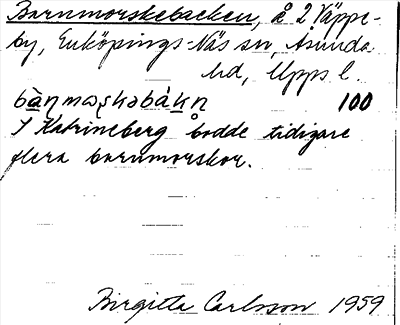 Barnmorskebacken, å 2 Väppe-
by, Enköpings-Näs sn, Åsunda
hd, Upps l.
bànmɷʂkəbákn̥ 100
I Katrineberg bodde tidigare
flera barnmorskor.
Birgitta Carlsson 1959